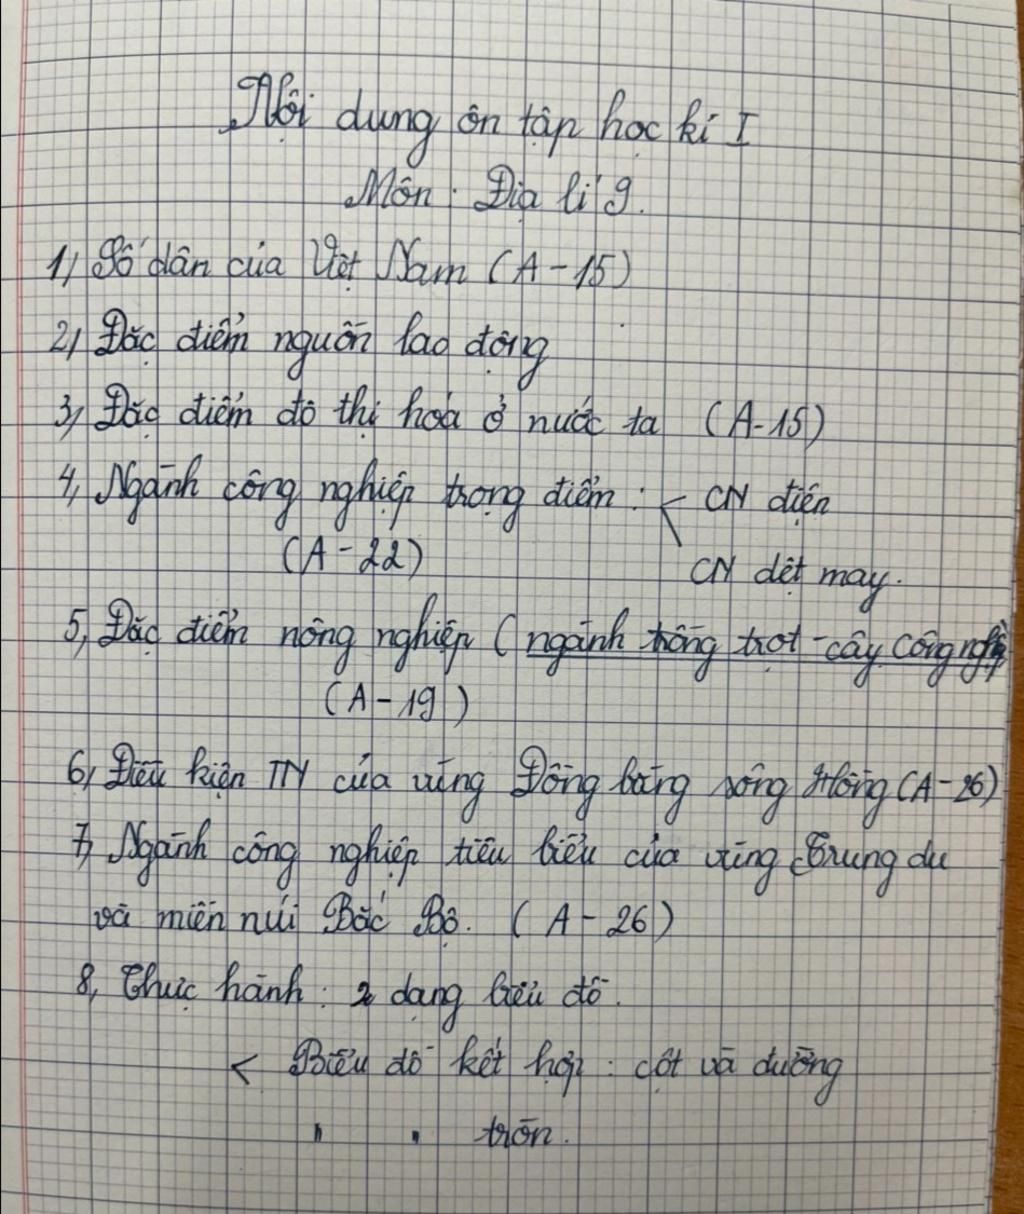 Nội dung ôn tập học kì I
Môn: Địa lí 9.
1, Số dân của Việt Nam (A-15)
2, Đặc điểm nguồn lao động
3, Đặc điểm đô thị hoá ở nước ta (A-15)
4, Ngành công nghiệp trọng điểm: < CN điện
(A-22) CN dệt may.
5, Đặc điểm nông nghiệp (ngành trồng trọt - cây công nghiệp
(A-19)
6, Điều kiện TN của vùng Đồng bằng sông Hồng (A-26)
7, Ngành công nghiệp tiêu biểu của vùng Trung du
và miền núi Bắc Bộ. (A-26)
8, Thực hành: 2 dạng biểu đồ.
< Biểu đồ kết hợp: cột và đường
" " tròn.